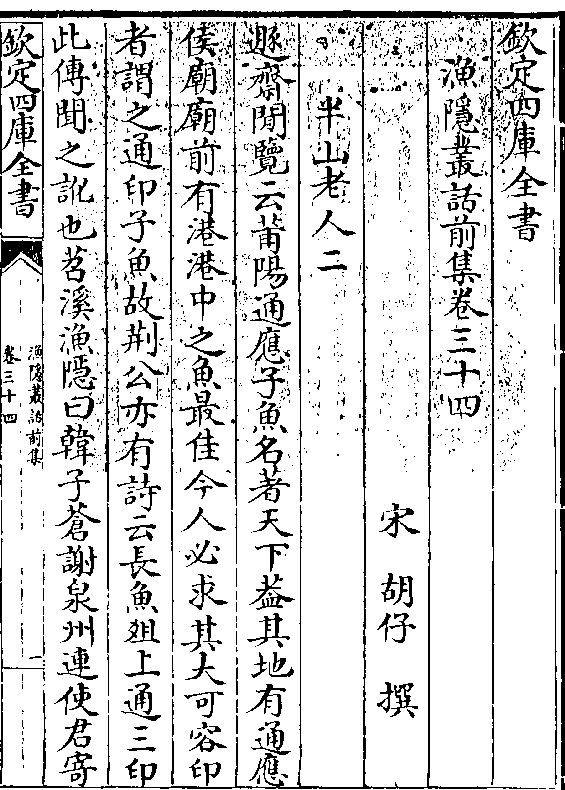 欽定四庫全書
漁隱叢話前集卷三十四
宋 胡仔 撰
半山老人二
遯齋閒覽云莆陽通應子魚名著天下葢其地有通應
侯廟廟前有港港中之魚最佳今人必求其大可容印
者謂之通印子魚故荆公亦有詩云長魚俎上通三印
此傳聞之訛也苕溪漁隱曰韓子蒼謝泉州連使君寄
欽定四庫全書
漁隱叢話前集
卷三十四
一